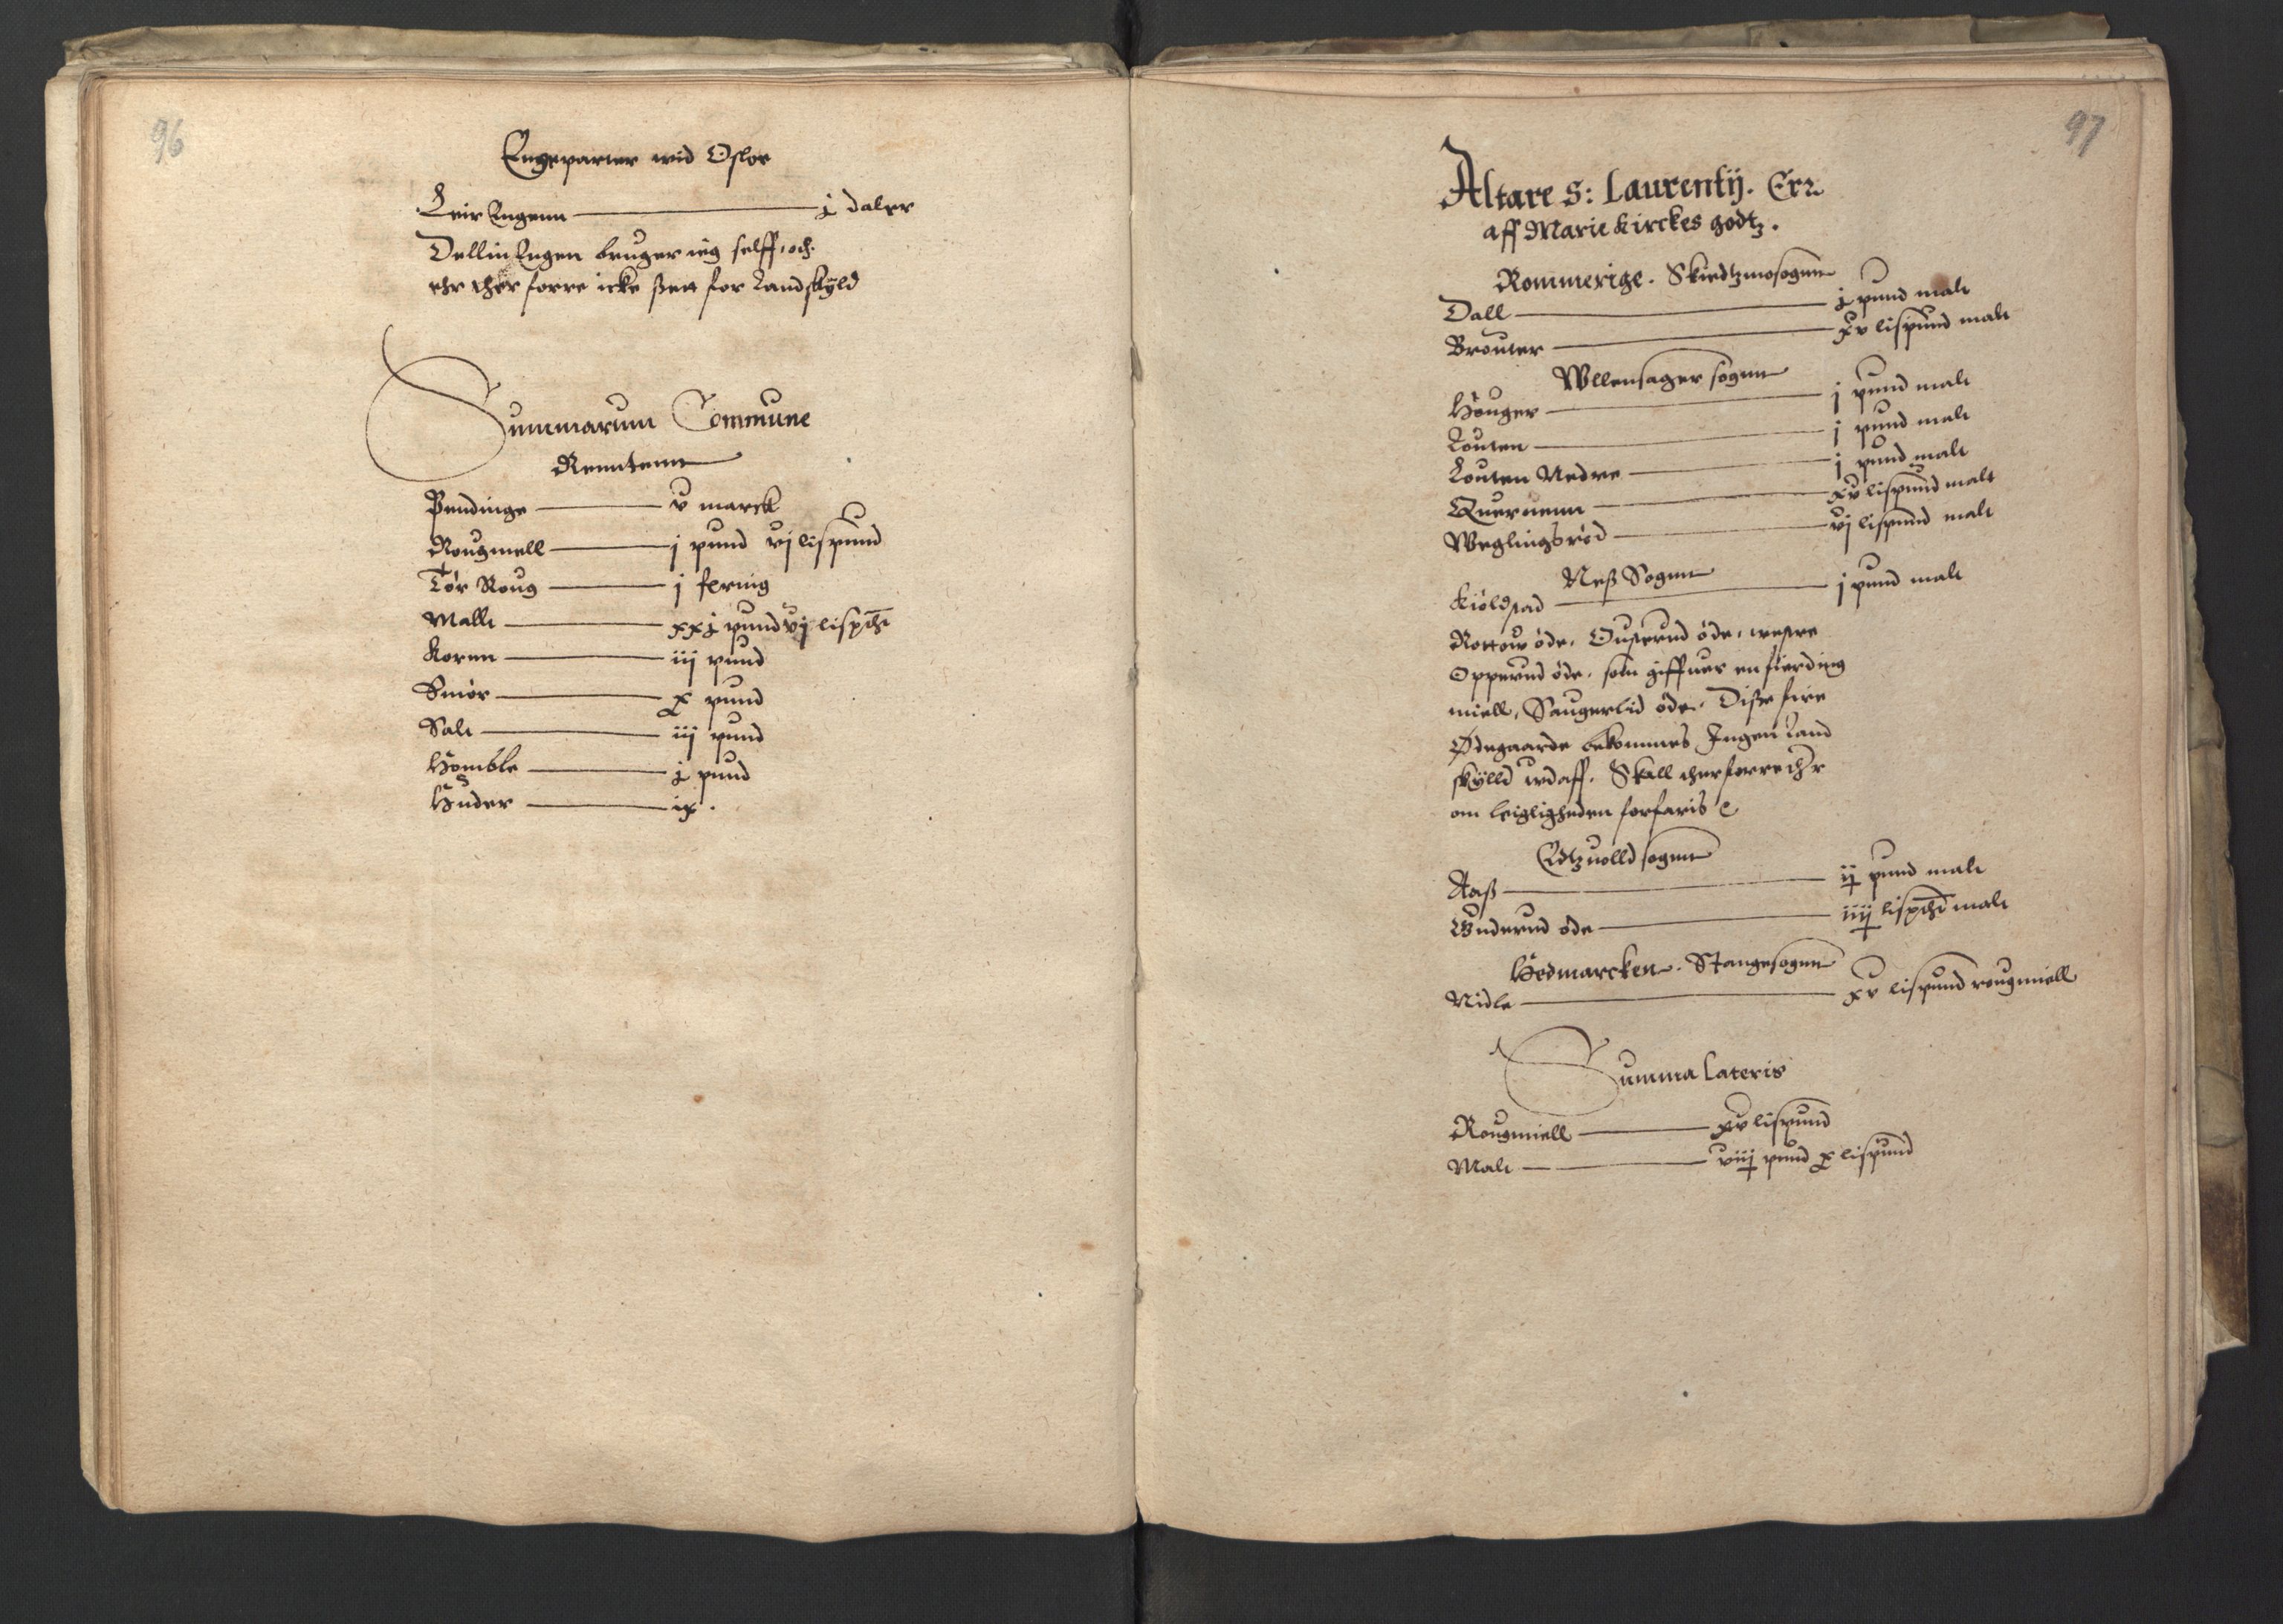 96
Engeparter wid Osloe
Leir Engenn — j daler
Dellin Engen bruger ieg selff, och
ehr ther forre icke sett for Landskyld
Summarum Commune
Renntenn
Pendinge — v marck
Rougmell — j pund vj lispund
Tør Roug — j fering
Mallt — xxj pund vj lispd
Kornn — iij pund
Smør — x pund
Salt — iij pund
Homble — j pund
Huder — ix.
97
Altare S: Laurentij. Err
aff Marie Kirckes godtz.
Rommerige. Skiedtzmosogenn
Dall — j pund malt
Brouter — xv lispund malt
Wllensager sogenn
Houger — j pund malt
Louten — j pund malt
Louten Nedre — j pund malt
Quernenn — xv lispund malt
Weglingsrød — vj lispund malt
Neß Sogenn
Kiølstad — j pund malt
Rottow øde. Ousterud øde, westre
Opperud øde. som giffuer en fierding
miell, Saugerlid øde. Disse fire
Ødegaarde bekommes Ingen Land
skylld wdaff. Skall therforre ther
om leigligheden forfaris
Edtzuolld sogenn
Aaß — ij pund malt
Gunderud øde — iiij lispd malt
Hedmarcken. Stangesogenn
Nidle — xv lispund rougmiell
Summa Lateris
Rougmiell — xv lispund
Malt — viij pund x lispund